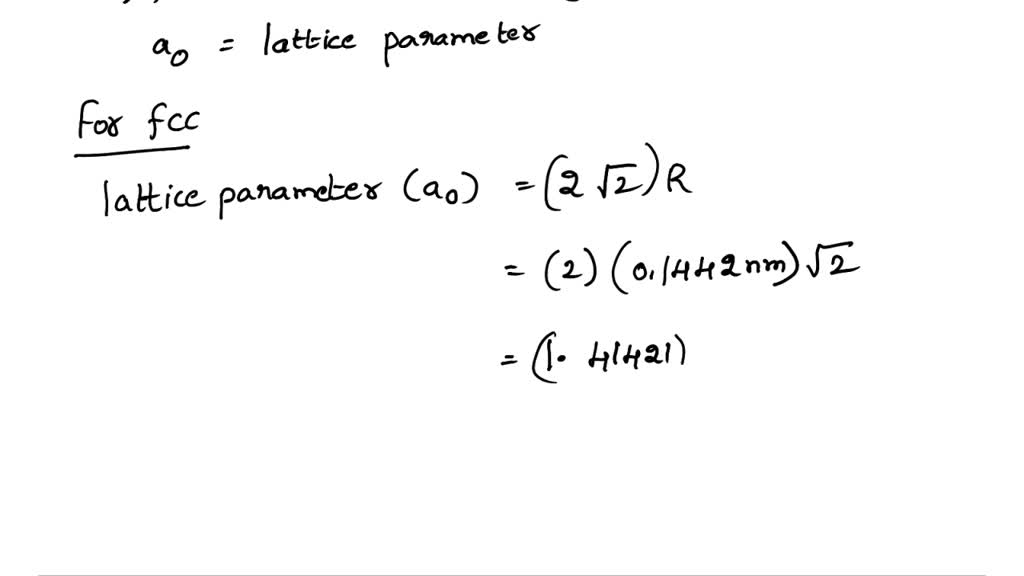 a₀ = lattice parameter
For fcc
lattice parameter (a₀) = (2 √2) R
= (2) (0.1442nm) √2
= (1.41421)